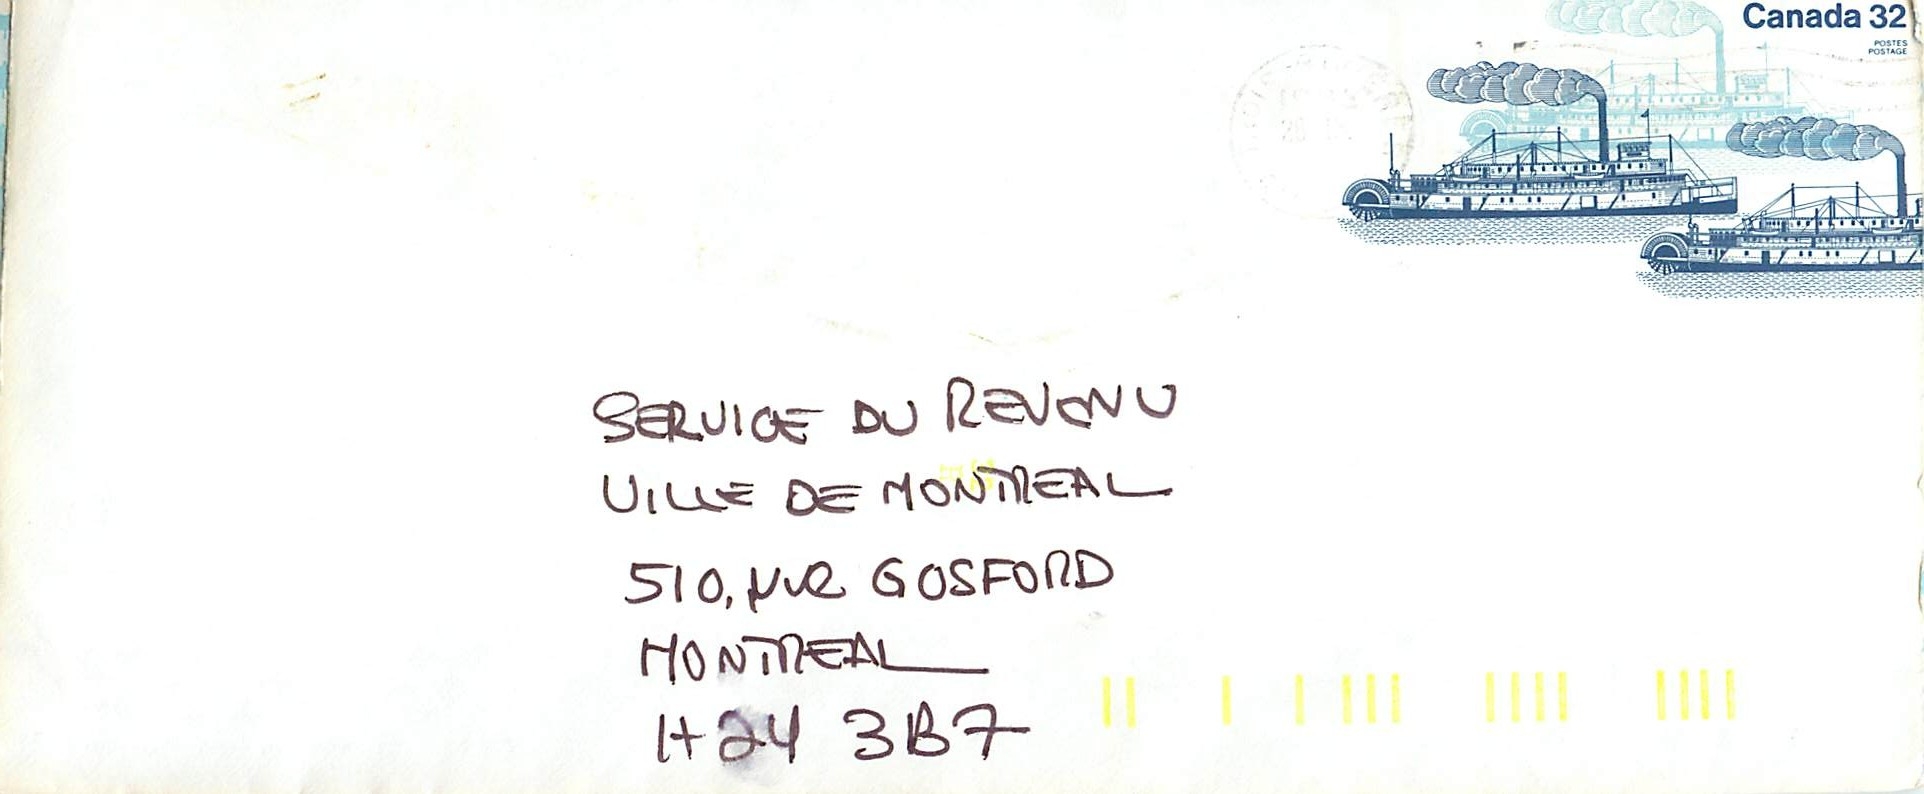 Canada 32
POSTES
POSTAGE
SERVICE DU REVENU
VILLE DE MONTREAL
510, rue GOSFORD
MONTREAL
H2Y 3B7